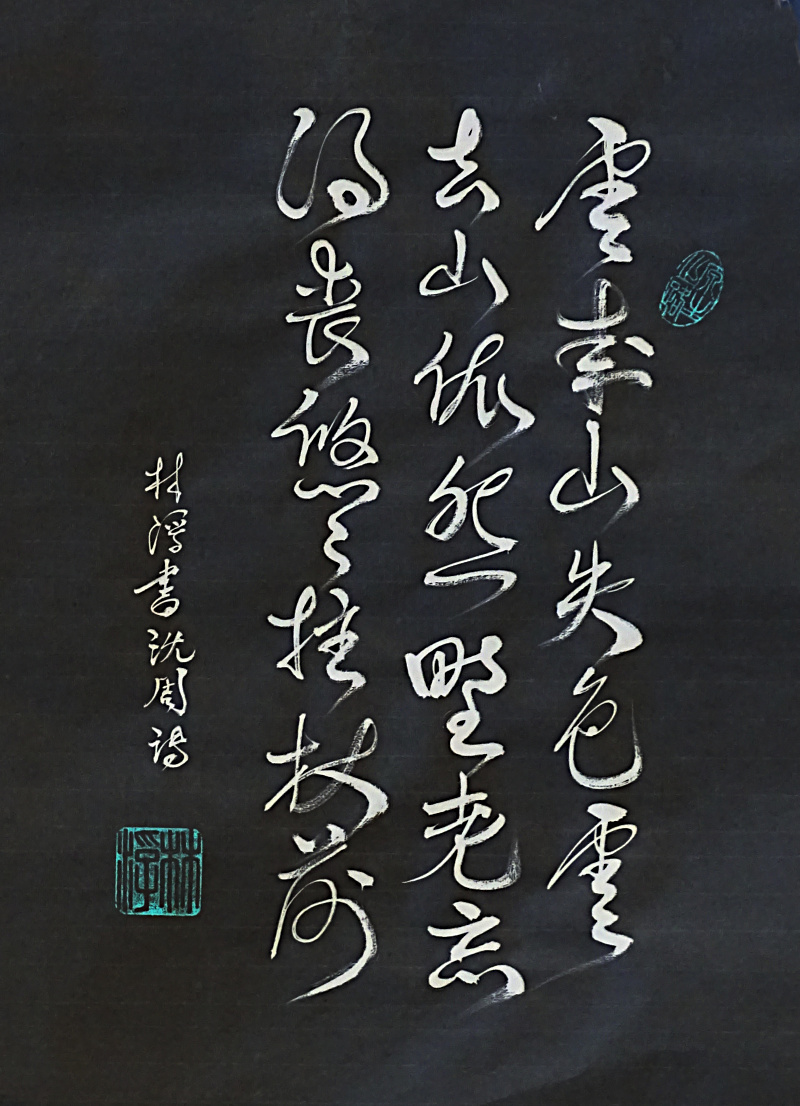 雲來山失色雲
去山依然野老忘
得喪悠悠拄杖前
林書沈周詩